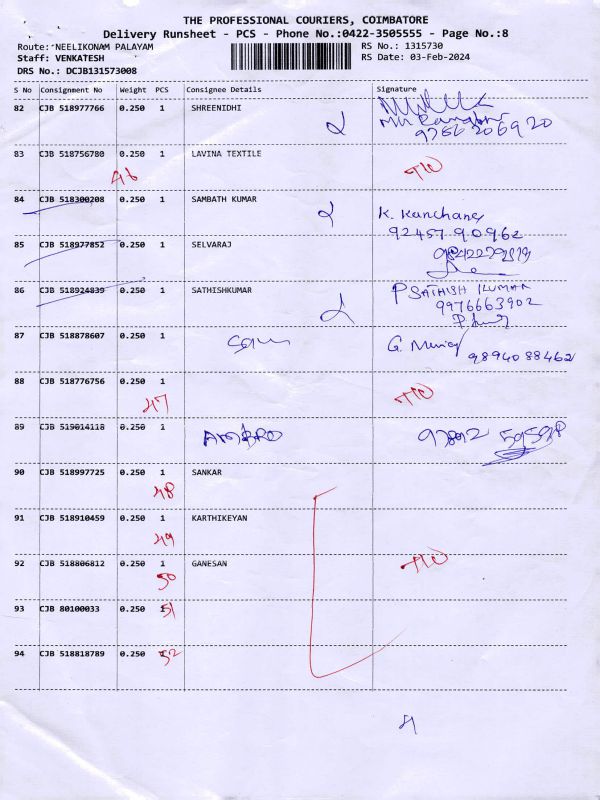 THE PROFESSIONAL COURIERS, COIMBATORE
Delivery Runsheet - PCS - Phone No.:0422-3505555 - Page No.:8
Route: NEELIKONAM PALAYAM RS No.: 1315730
Staff: VENKATESH RS Date: 03-Feb-2024
DRS No.: DCJB131573008
S No Consignment No Weight PCS Consignee Details Signature
82 CJB 518977766 0.250 1 SHREENIDHI
83 CJB 518756780 0.250 1 LAVINA TEXTILE
46
84 CJB 518300208 0.250 1 SAMBATH KUMAR
K. Kanchana
92457 90962
85 CJB 518977852 0.250 1 SELVARAJ
86 CJB 518924839 0.250 1 SATHISHKUMAR
P SATHISH KUMAR
9976663902
87 CJB 518878607 0.250 1
G.
9894088462
88 CJB 518776756 0.250 1
47
89 CJB 519014118 0.250 1
90 CJB 518997725 0.250 1 SANKAR
48
91 CJB 518910459 0.250 1 KARTHIKEYAN
49
92 CJB 518806812 0.250 1 GANESAN
50
93 CJB 80100033 0.250 51
94 CJB 518818789 0.250 52